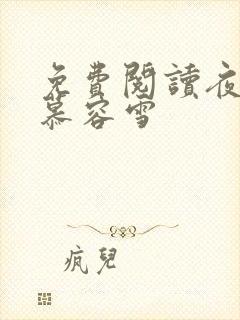 免費閱讀夜
慕容雪
瘋兒